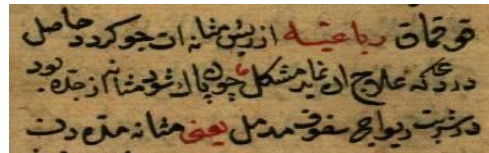 قوقماق رباعیه از ریش مثانه ات جو کردد حاصل
درد که علاج آن نماید مشکل چون پاک شود مثانه از چده بود
در شربت دیواجی سفوف مدمل یعنی مثانه